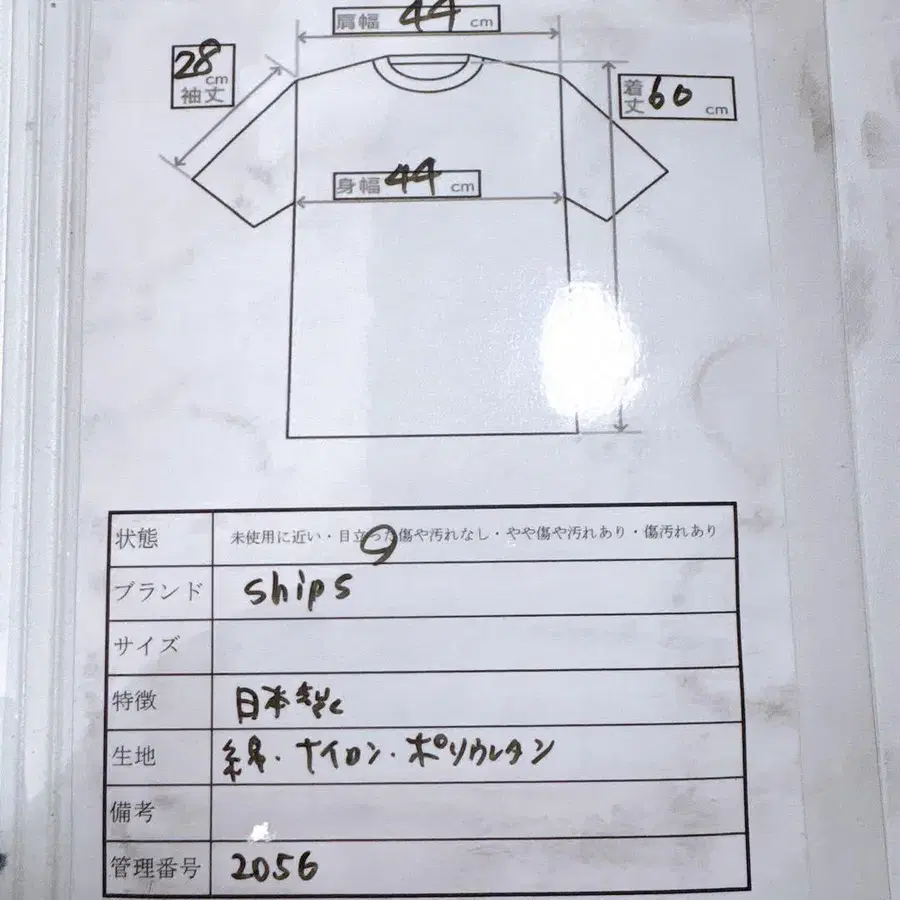 肩幅 44 cm
28 cm
袖丈
着丈 60 cm
身幅 44 cm
状態 未使用に近い・目立った傷や汚れなし・やや傷や汚れあり・傷汚れあり
ブランド ships
サイズ
特徴 日本製
生地 綿・ナイロン・ポリウレタン
備考
管理番号 2056